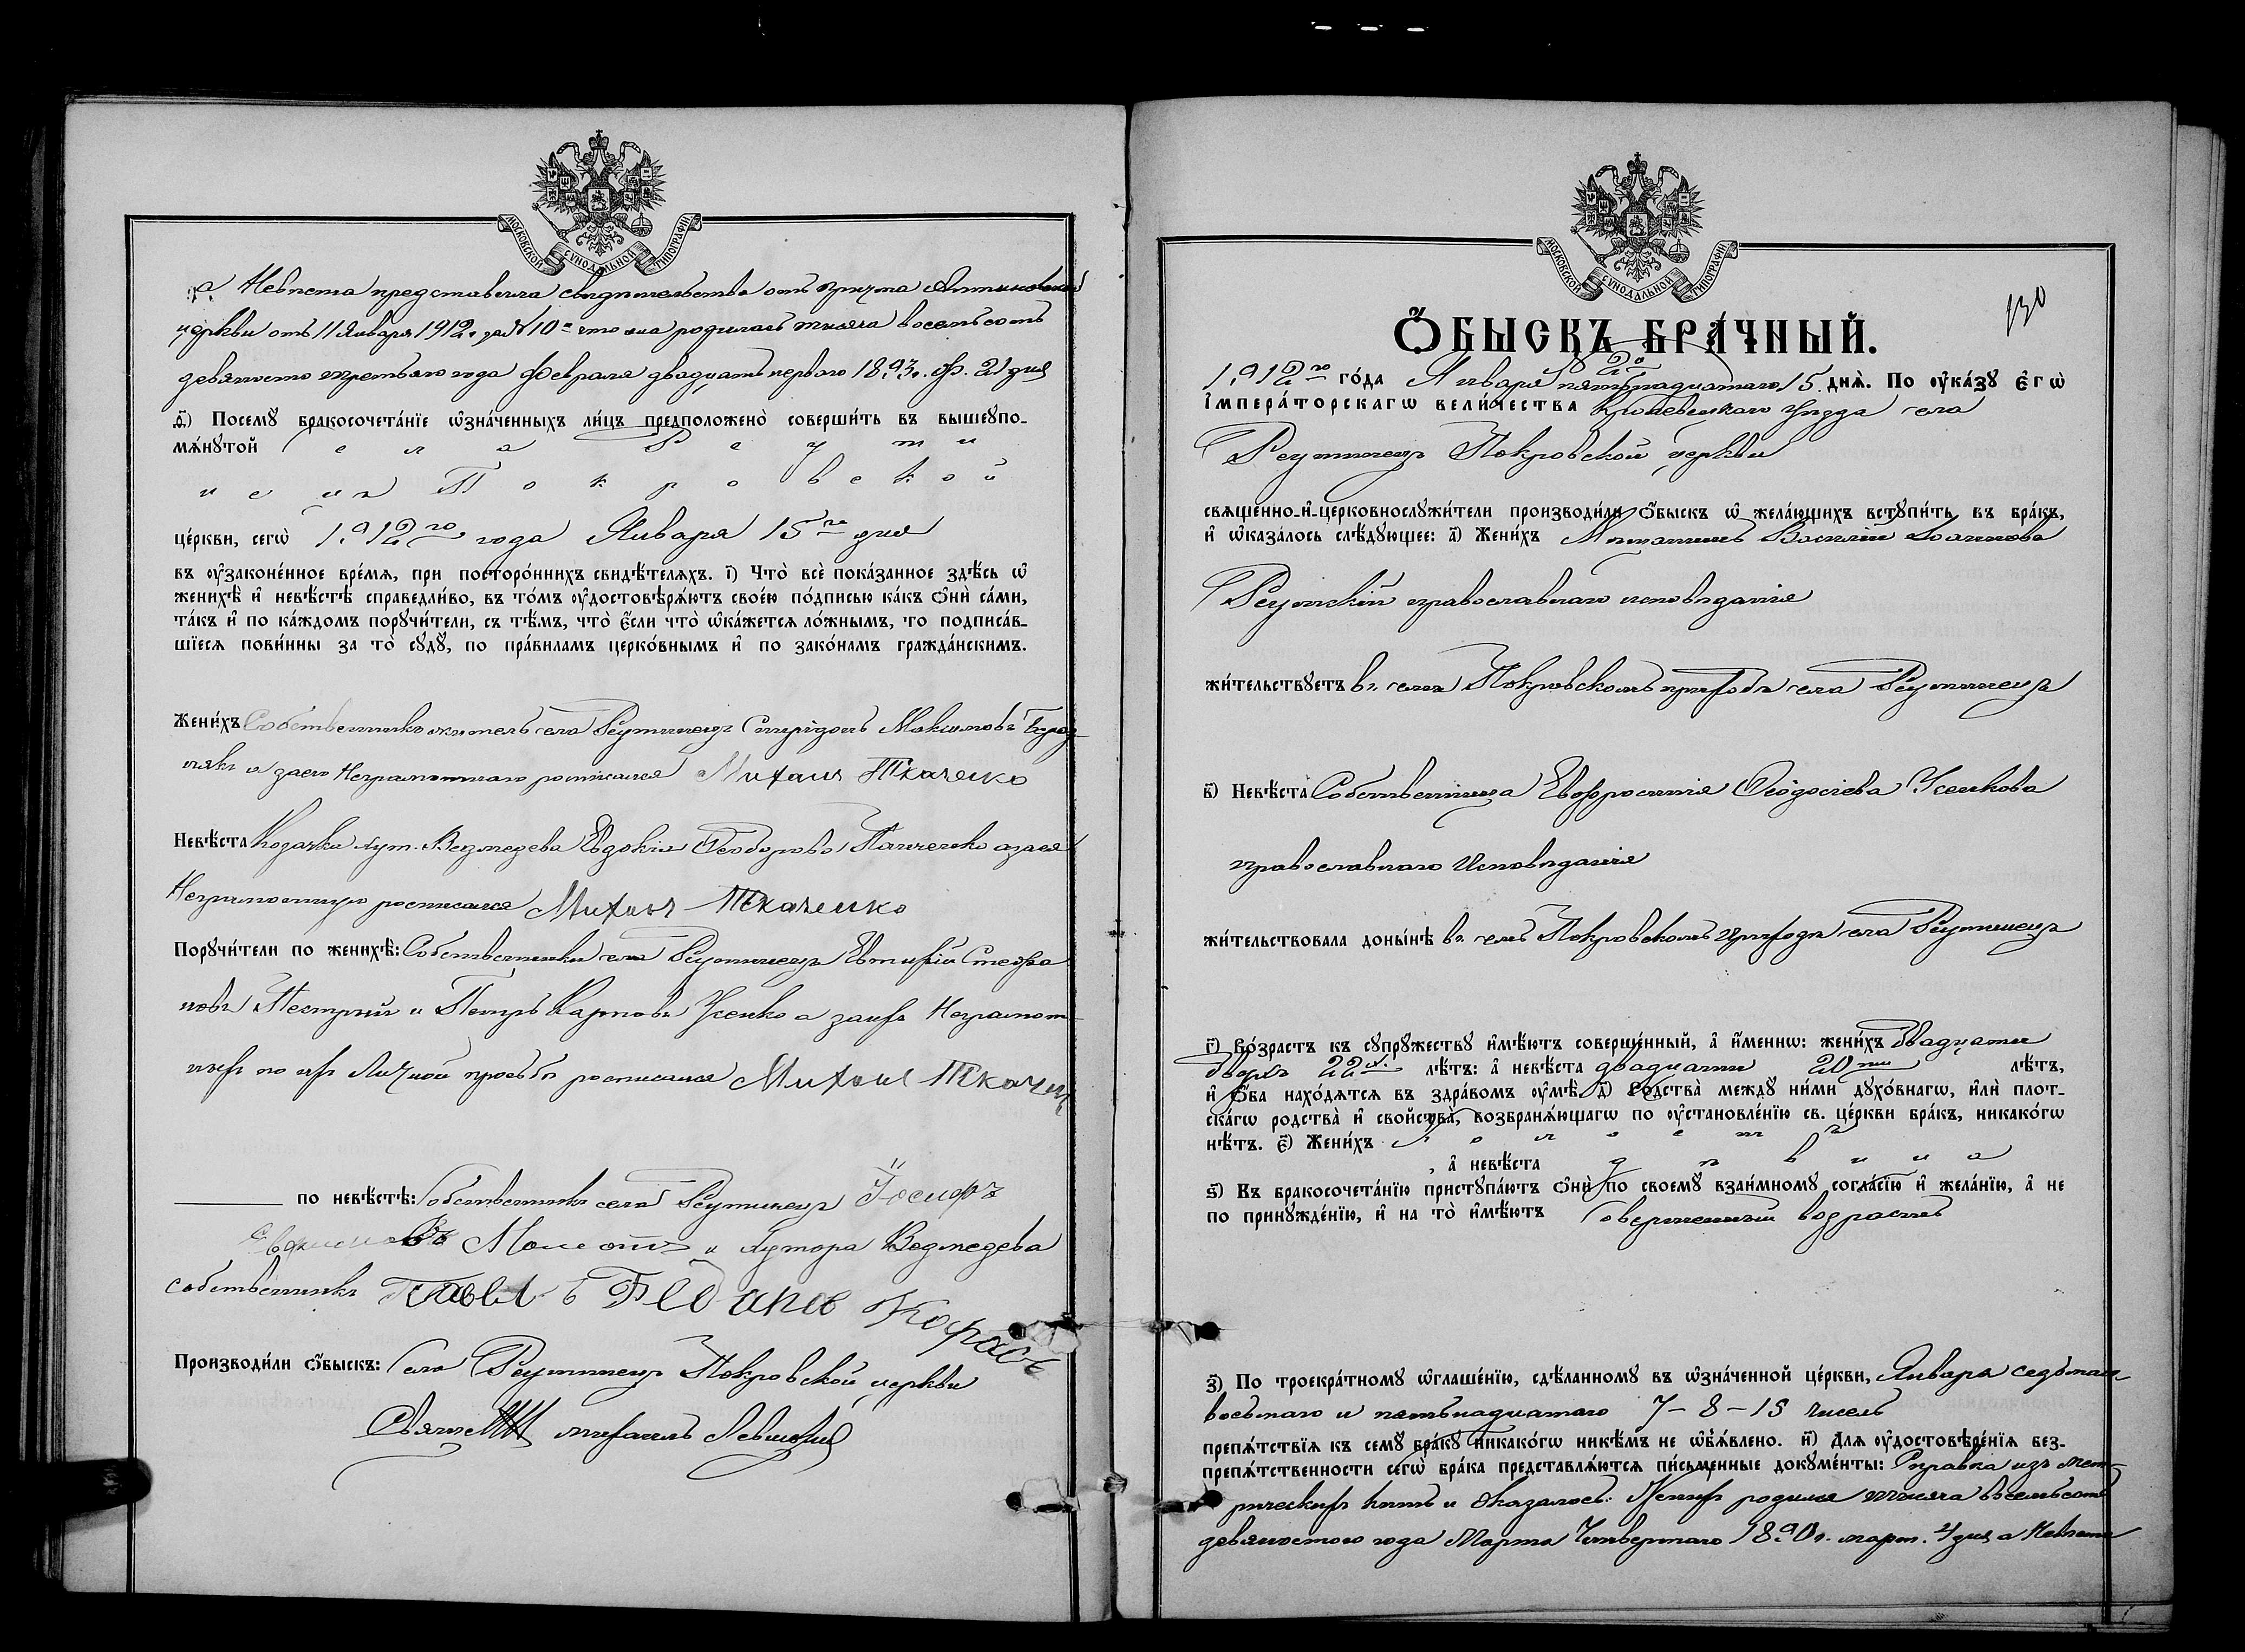 МОСКОВСКОЙ СУНОДАЛЬНОЙ ТИПОГРАФІИ
а Невѣста представила свидѣтельство отъ причта
церкви отъ 11 Января 1912 г. за № 10 что она родилась тысяча восемьсотъ
девяносто третьяго года Февраля двадцать перваго 1893 г. ф. 21 дня
Посемꙋ̀ бракосочета́нїе ѡ҆зна́ченныхъ ли́цъ предположено̀ соверши́ть въ вышеꙋпо-
мѧ́нꙋтой села Реути
нецъ Покровской
це́ркви, сегѡ̀ 1912го года Января 15го дня
въ ᲂу҆законе́нное вре́мѧ, при посторо́ннихъ свидѣ́телѧхъ. і҃) Что̀ всѐ пока́занное здѣ́сь ѡ҆
женихѣ̀ и҆ невѣ́стѣ справедли́во, въ то́мъ ᲂу҆достовѣрѧ́ютъ свое́ю по́дписью ка́къ ѻ҆нѝ са́ми,
та́къ и҆ по ка́ждомъ порꙋчи́тели, съ тѣ́мъ, что̀ є҆́сли что̀ ѡ҆ка́жетсѧ ло́жнымъ, то подписа́в-
шїесѧ пови́нны за то̀ сꙋдꙋ̀, по пра́виламъ церко́внымъ и҆ по зако́намъ гражда́нскимъ.
Жени́хъ Собственникъ житель села Реутинецъ Спиридонъ Максимовъ
а за его Неграмотнаго росписался Михаил Ткаченко
Невѣ́ста Козачка хут. Ведмедева Евдокія Феодорова Панченко а за ея
Неграмотную росписался Михаил Ткаченко
Порꙋчи́тели по женихѣ̀: Собственники села Реутинецъ Евтихій Стефа
новъ Пестрый и Петръ Карповъ Усенко а за ихъ Неграмот
ныхъ по ихъ Личной просьбѣ росписался Михаил Ткачен
по невѣ́стѣ: Собственникъ села Реутинецъ Іосифъ
и хутора Ведмедева
собственникъ Павелъ
Производи́ли ѻ҆́быскъ: Села Реутинецъ Покровской церкви
Священ Михаилъ
МОСКОВСКОЙ СУНОДАЛЬНОЙ ТИПОГРАФІИ
130
Ѻ҆́БЫСКЪ БРА́ЧНЫЙ.
1912го го́да Января пятьнадцатаго 15 днѧ̀. По ᲂу҆ка́зꙋ Є҆гѡ̀
І҆мпера́торскагѡ вели́чества Кролевецкаго Уѣзда села
Реутинецъ Покровской церкви
свѧще́нно-и҆-церковнослꙋжи́тели производи́ли ѻ҆́быскъ ѡ҆ жела́ющихъ встꙋпи́ть въ бра́къ,
и҆ ѡ҆каза́лось слѣ́дꙋющее: а҃) Жени́хъ Василій Іоанновъ
православнаго исповѣданія
жи́тельствꙋетъ въ семъ Покровскомъ приходѣ села Реутинецъ
в҃) Невѣ́ста Собственница Евфросинія Ѳеодосіева Усенкова
православнаго Исповѣданія
жи́тельствовала доны́нѣ въ семъ Покровскомъ приходѣ села Реутинецъ
г҃) Во́зрастъ къ сꙋпрꙋ́жествꙋ и҆мѣ́ютъ соверше́нный, а҆ и҆́меннѡ: жени́хъ двадцати
двухъ 22х лѣ́тъ: а҆ невѣ́ста двадцати 20ти лѣ́тъ,
и҆ ѻ҆́ба нахо́дѧтсѧ въ здра́вомъ ᲂу҆мѣ̀. д҃) Родства̀ междꙋ ни́ми дꙋхо́внагѡ, и҆лѝ плот-
ска́гѡ родства̀ и҆ сво́йства, возбранѧ́ющагѡ по ᲂу҆становле́нїю св. це́ркви бра́къ, никако́гѡ
нѣ́тъ. є҃) Жени́хъ холостъ
, а҆ невѣ́ста дѣвица
ѕ҃) Къ бракосочета́нїю пристꙋпа́ютъ ѻ҆нѝ по своемꙋ̀ взаи́мномꙋ согла́сїю и҆ жела́нїю, а҆ не
по принꙋжде́нїю, и҆ на то̀ и҆мѣ́ютъ Совершенный возрастъ
з҃) По троекра́тномꙋ ѡ҆глаше́нїю, сдѣ́ланномꙋ въ ѡ҆зна́ченной це́ркви, Января седьмаго
восьмаго и пятьнадцатаго 7 – 8 – 15 чиселъ
препѧ́тствїѧ къ семꙋ̀ бра́кꙋ никако́гѡ никѣ́мъ не ѡ҆б̾ѧ́влено. и҃) Длѧ ᲂу҆достовѣре́нїѧ без-
препѧ́тственности сегѡ̀ бра́ка представлѧ́ютсѧ пи́сьменные докꙋме́нты: Справка изъ мет-
рическихъ книгъ и оказалось: Женихъ родился тысяча восемьсотъ
девяностого года Марта Четвертаго 1890 г. март. 4 дня а Невѣста